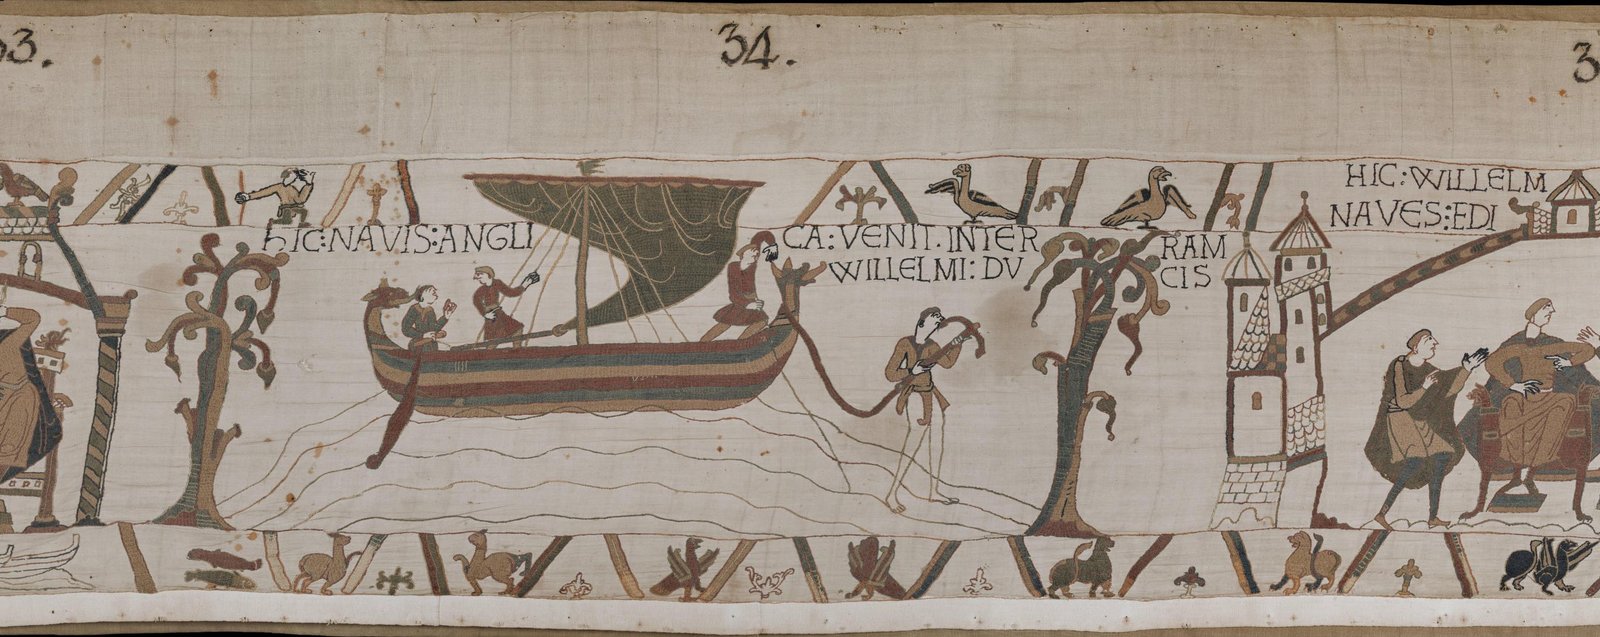 34.
HIC:NAVIS:ANGLI
CA:VENIT.INTER
WILLELMI:DV
RAM
CIS
HIC:WILLELM
NAVES:EDI